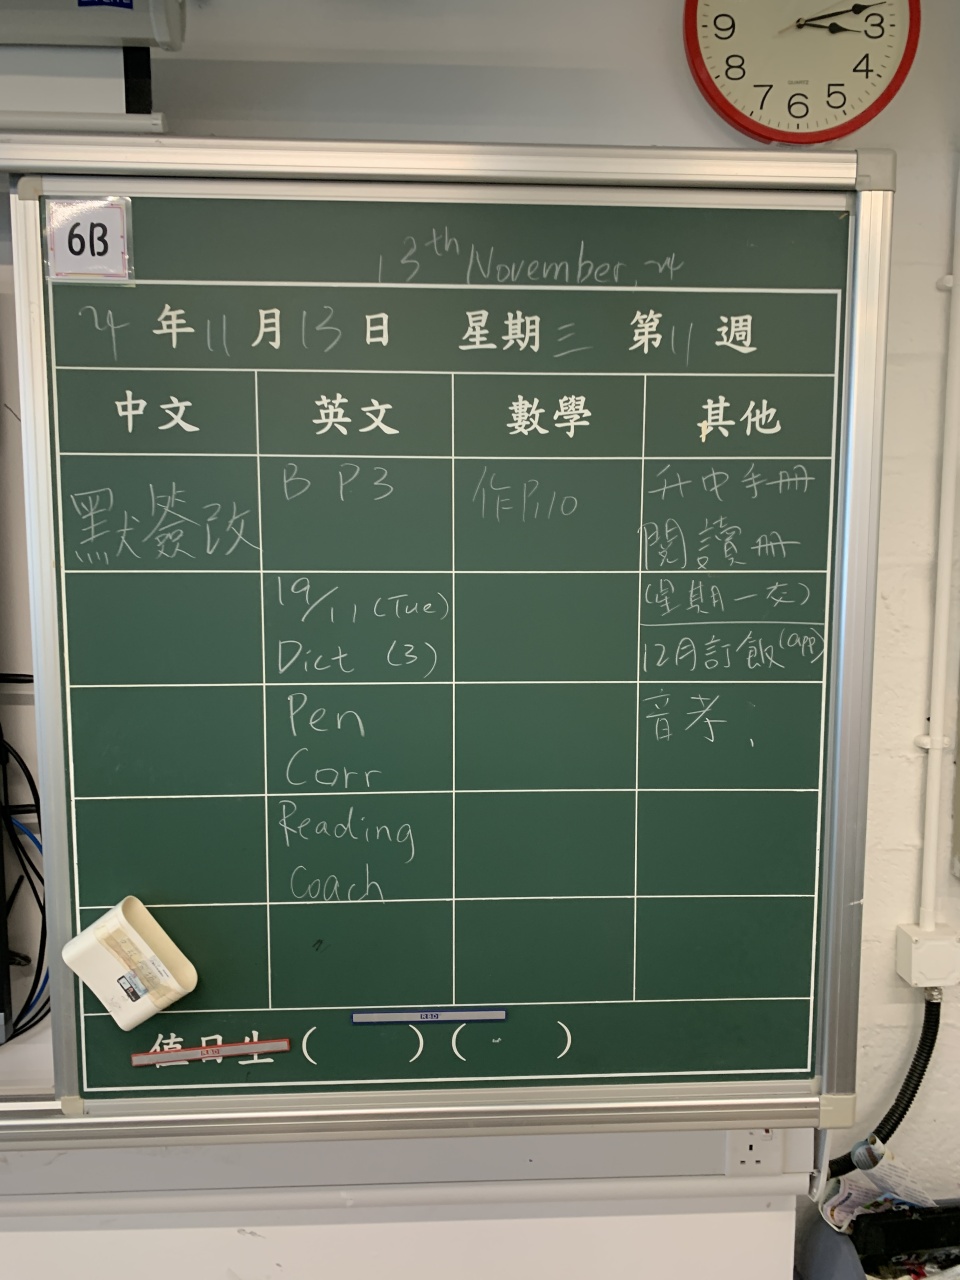 9 3
8 4
7 6 5
QUARTZ
6B
13th November, 24
24 年 11 月 13 日 星期 三 第 11 週
中文 英文 數學 其他
默簽改 B P3 作P.10 升中手冊
閱讀冊
19/11 (Tue) (星期一交)
Dict (3) 12月訂飯(app)
Pen 音考:
Corr
Reading
Coach
值日生 ( ) ( )